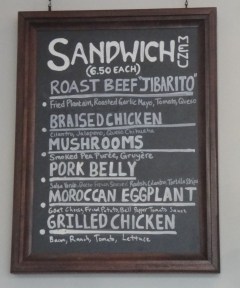 SANDWICH MENU
(6.50 EACH)
ROAST BEEF "JIBARITO"
Fried Plantain, Roasted Garlic Mayo, Tomato, Queso
BRAISED CHICKEN
Cilantro, Jalapeno, Queso Chihuahua
MUSHROOMS
Smoked Pea Purée, Gruyère
PORK BELLY
Salsa Verde, Queso Fresco, Radish, Cilantro, Tortilla Strips
MOROCCAN EGGPLANT
Goat Cheese, Fried Potato, Bell Pepper Tomato Sauce
GRILLED CHICKEN
Bacon, Ranch, Tomato, Lettuce